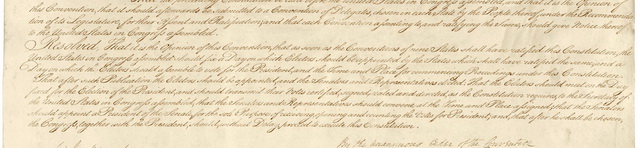 this Convention, that it should afterwards be submitted to a Convention of Delegates, chosen in each State by the People thereof, under the Recommenda-
tion of its Legislature, for their Assent and Ratification; and that each Convention assenting to, and ratifying the Same, should give Notice thereof
to the United States in Congress assembled.
Resolved, That it is the Opinion of this Convention, that as soon as the Conventions of nine States shall have ratified this Constitution, the
United States in Congress assembled should fix a Day on which Electors should be appointed by the States which shall have ratified the same, and a
Day on which the Electors should assemble to vote for the President, and the Time and Place for commencing Proceedings under this Constitution.
That after such Publication the Electors should be appointed, and the Senators and Representatives elected: That the Electors should meet on the Day
fixed for the Election of the President, and should transmit their Votes certified, signed, sealed and directed, as the Constitution requires, to the Secretary of
the United States in Congress assembled, that the Senators and Representatives should convene at the Time and Place assigned; that the Senators
should appoint a President of the Senate, for the sole Purpose of receiving, opening and counting the Votes for President; and, that after he shall be chosen,
the Congress, together with the President, should, without Delay, proceed to execute this Constitution.
By the unanimous Order of the Convention